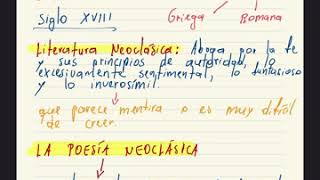 Siglo XVIII
Griega Romana
Literatura Neoclásica: Aboga por la fe
y sus principios de autoridad, lo
excesivamente sentimental, lo fantasioso
y lo inverosímil.
que parece mentira o es muy difícil
de creer.
LA POESÍA NEOCLÁSICA